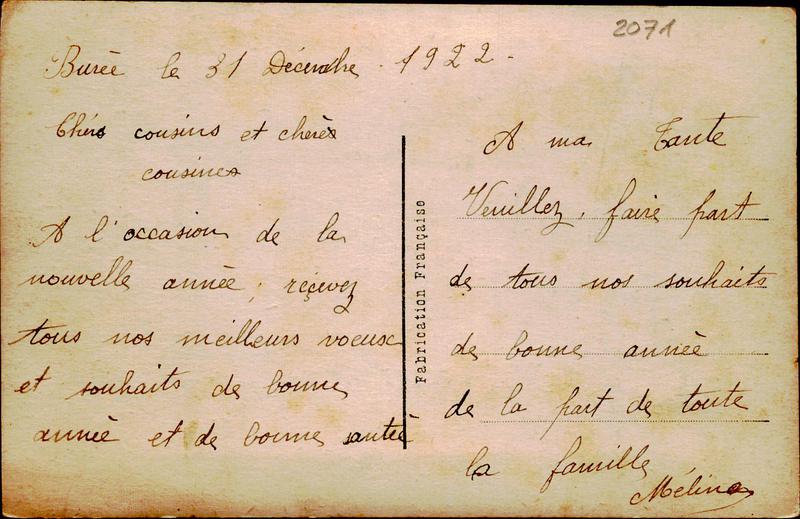 2071
Burèe le 31 Décembre 1922.
Chérs cousins et chèrès
cousines
A l'occasion de la
nouvelle annèe, reçevez
tous nos meilleurs voeux
et souhaits de bonne
annèe et de bonne santeè
Fabrication Française
A ma Tante
Veuillez, faire part
de tous nos souhaits
de bonne annèe
de la part de toute
la famille
Mélina